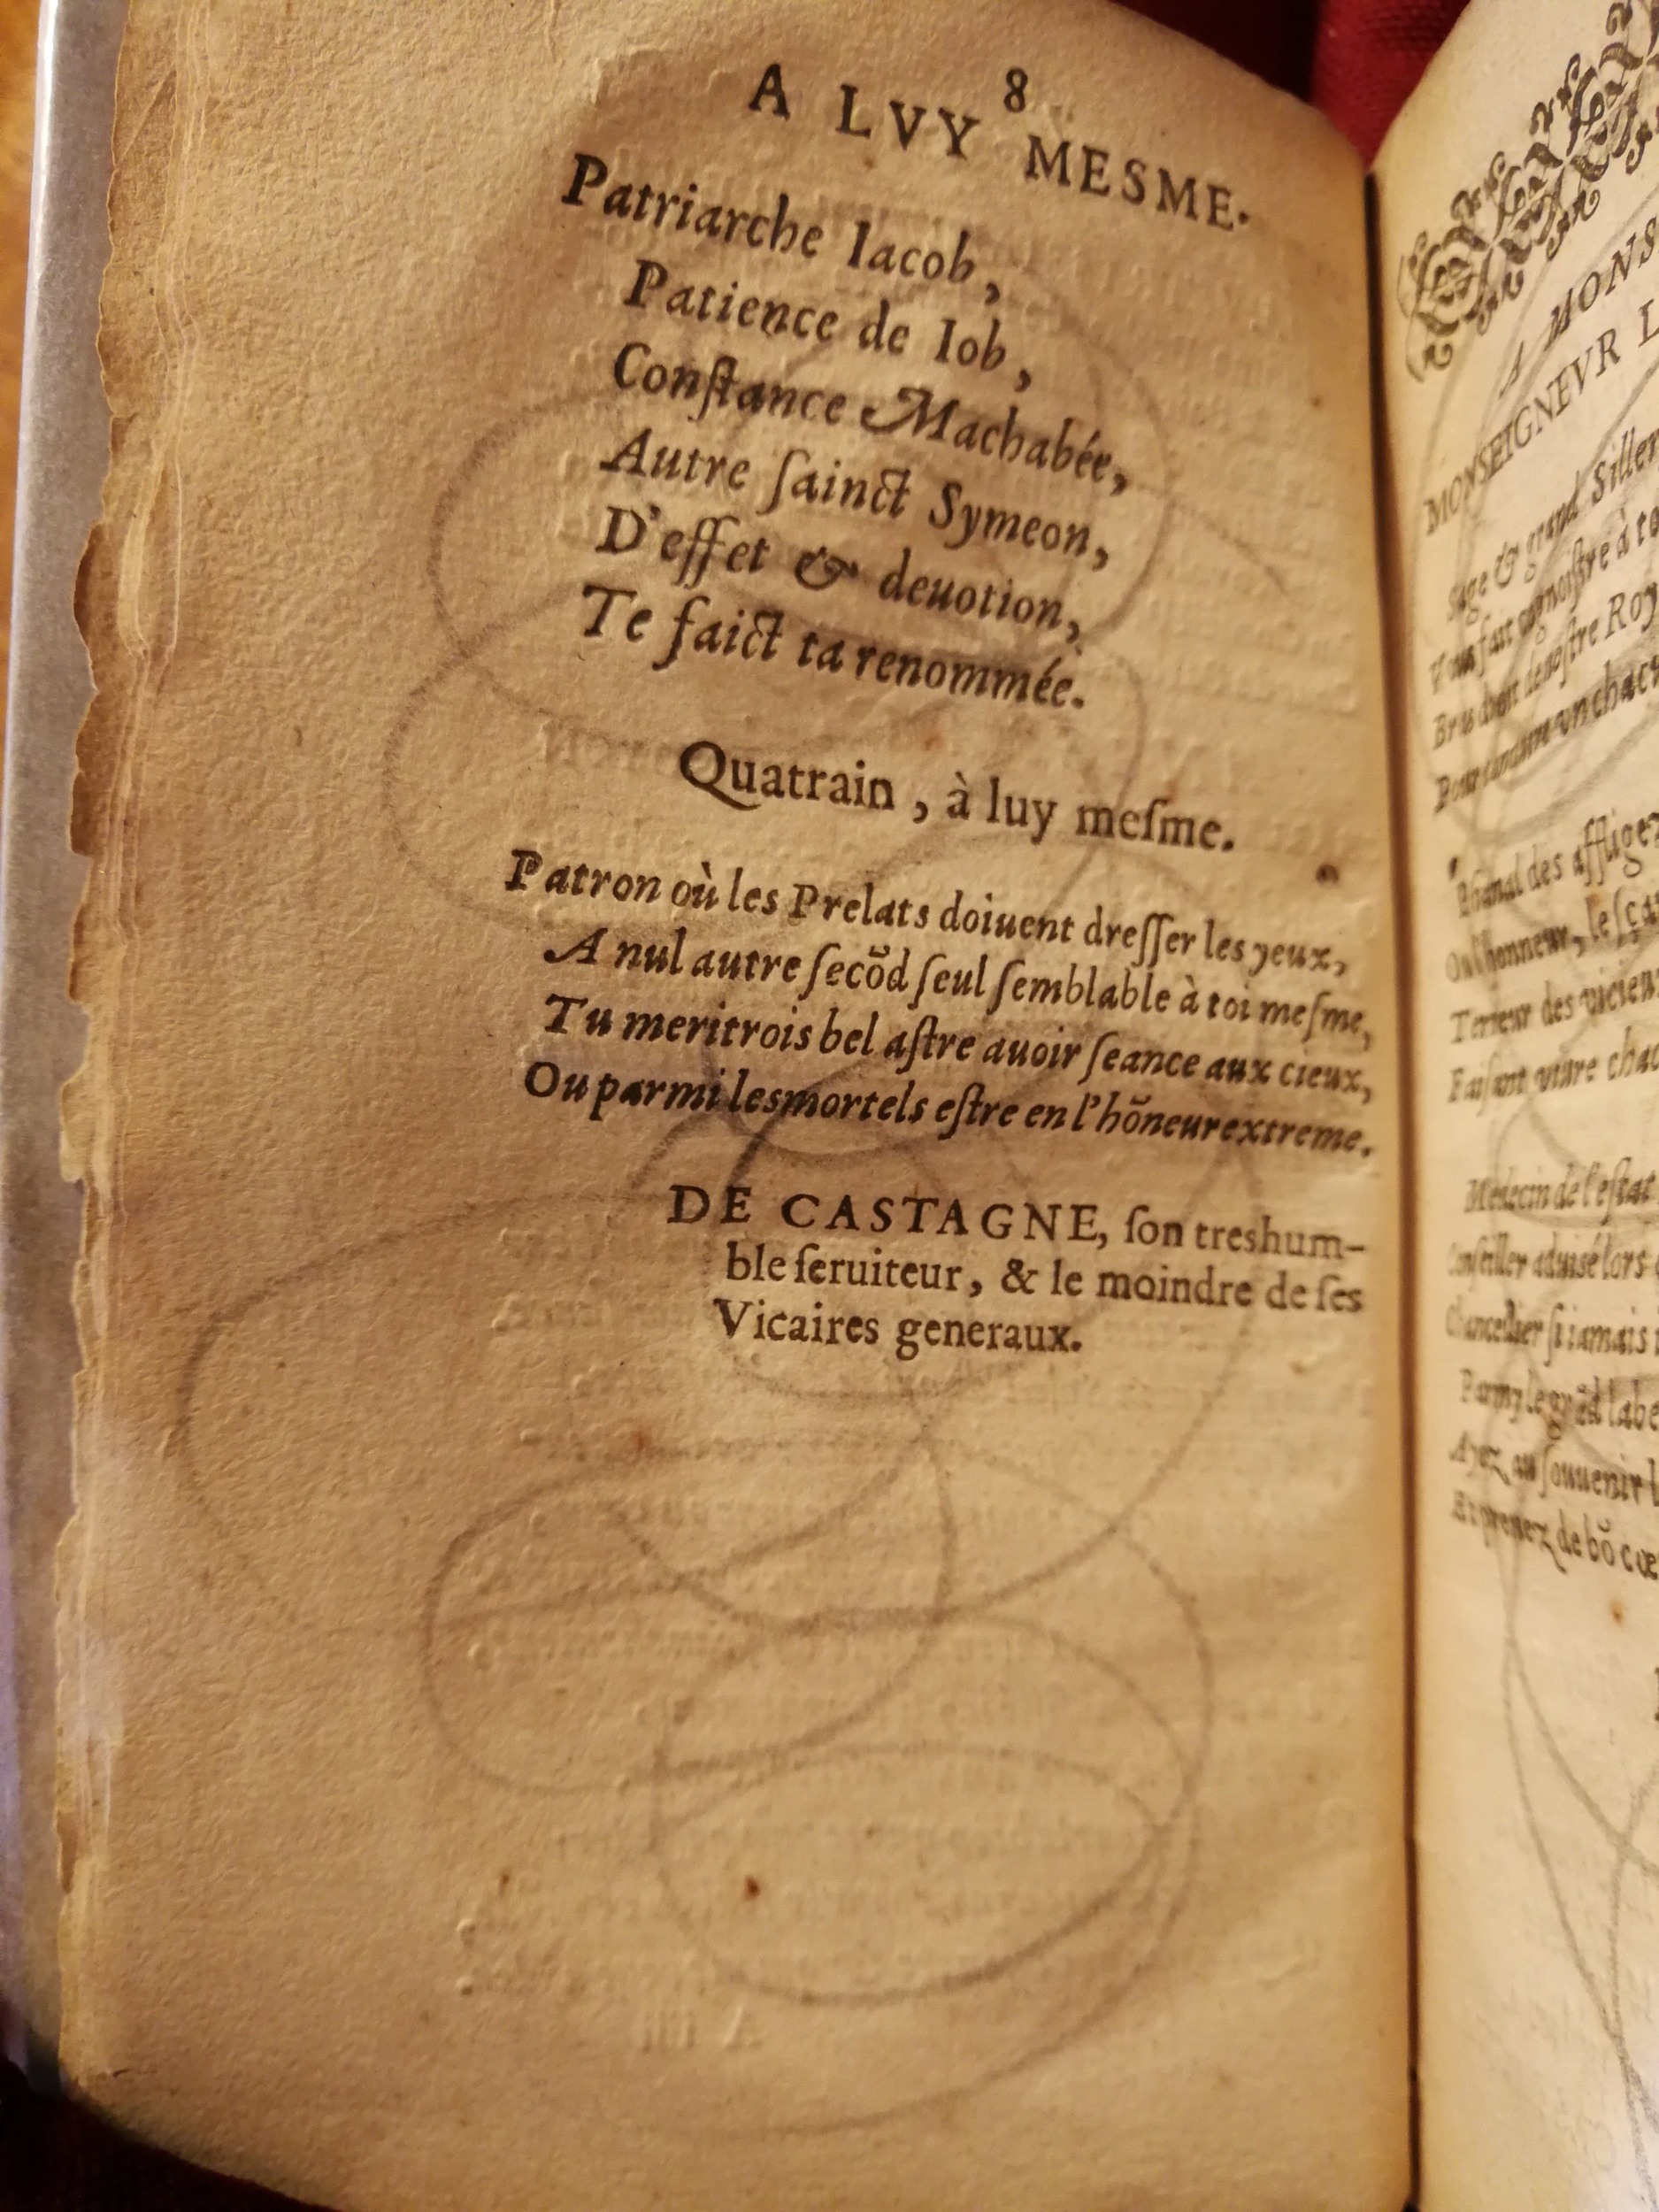 8
A LVY MESME.
Patriarche Iacob,
Patience de Iob,
Conſtance Machabée,
Autre ſainct Symeon,
D'effet & deuotion,
Te faict ta renommée.
Quatrain, à luy meſme.
Patron où les Prelats doiuent dreſſer les yeux,
A nul autre ſecõd ſeul ſemblable à toi meſme,
Tu meritrois bel aſtre auoir ſeance aux cieux,
Ou parmi les mortels eſtre en l'hõneur extreme.
DE CASTAGNE, ſon treshum-
ble ſeruiteur, & le moindre de ſes
Vicaires generaux.
A MONS
MONSEIGNEVR L
Sage & grand Siller
Vous fait cognoiſtre à to
Bras droit de noſtre Roy
Pour un chac
des affligez
l'honneur, le ſça
Terreur des vicieux
Faiſant viure chac
Medecin de l'eſtat
Conſeiller aduisé lors
Chancellier ſi iamais
Parmy le grãd labe
Ayez au ſouuenir l
Et prenez de bõ cœ